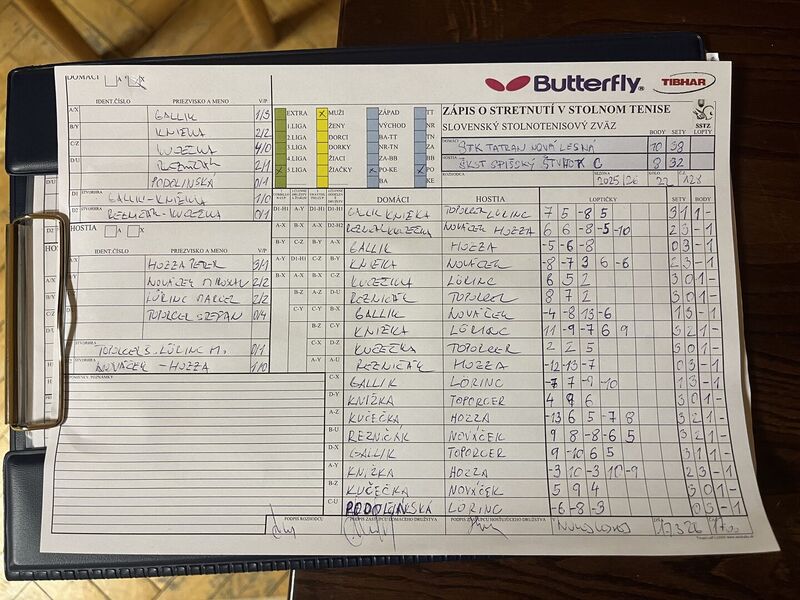 DOMÁCI A X
IDENT.ČÍSLO PRIEZVISKO A MENO V/P
A/X GALLIK 1/3
B/Y KNIŽKA 2/2
C/Z KUČEČKA 4/0
D/U REZNIČÁK 2/1
PODOLINSKÁ 0/1
D1 ŠTVORHRA GALLIK - KNIŽKA 1/0
D2 REZNIČÁK - KUČEČKA 0/1
HOSTIA A X
IDENT.ČÍSLO PRIEZVISKO A MENO V/P
HOZZA PETER 3/1
NOVÁČEK MIROSLAV 2/2
LÖRINC MARCEL 2/2
TOPORCER STEFAN 0/4
TOPORCER S. LÖRINC M. 0/1
NOVÁČEK - HOZZA 1/0
Butterfly TIBHAR
ZÁPIS O STRETNUTÍ V STOLNOM TENISE
SLOVENSKÝ STOLNOTENISOVÝ ZVÄZ
SSTZ
BODY SETY LOPTY
DOMÁCI STK TATRAN NOVÁ LESNÁ 10 38
HOSTIA ŠKST SPIŠSKÝ ŠTVRTOK C 8 32
ROZHODCA SEZÓNA 2025/26 KOLO 22 Č.
EXTRA MUŽI ZÁPAD TT
1.LIGA ŽENY VÝCHOD NR
2.LIGA DORCI BA-TT TN
3.LIGA DORKY NR-TN ZA
4.LIGA ŽIACI ZA-BB BB
5.LIGA ŽIAČKY PO-KE PO
BA KE
DOMÁCI HOSTIA LOPTIČKY SETY BODY
GALLIK KNIŽKA TOPORCER LÖRINC 7 5 -8 5 3 1 1 -
REZNIČÁK KUČEČKA NOVÁČEK HOZZA 6 6 -8 -5 -10 2 3 - 1
GALLIK HOZZA -5 -6 -8 0 3 - 1
KNIŽKA NOVÁČEK -8 -7 3 6 -6 2 3 - 1
KUČEČKA LÖRINC 6 5 2 3 0 1 -
REZNIČÁK TOPORCER 8 7 2 3 0 1 -
GALLIK NOVÁČEK -4 -8 13 -6 1 3 - 1
KNIŽKA LÖRINC 11 -9 -7 6 9 3 2 1 -
KUČEČKA TOPORCER 2 2 5 3 0 1 -
REZNIČÁK HOZZA -12 -13 -7 0 3 - 1
GALLIK LÖRINC -7 7 -9 -10 1 3 - 1
KNIŽKA TOPORCER 4 9 6 3 0 1 -
KUČEČKA HOZZA -13 6 5 -7 8 3 2 1 -
REZNIČÁK NOVÁČEK 9 8 -8 -6 5 3 2 1 -
GALLIK TOPORCER 9 -10 6 5 3 1 1 -
KNIŽKA HOZZA -3 10 -3 10 -9 2 3 - 1
KUČEČKA NOVÁČEK 5 9 4 3 0 1 -
PODOLINSKÁ LÖRINC -6 -8 -3 0 3 - 1
PODPIS ROZHODCU PODPIS ZÁSTUPCU DOMÁCEHO DRUŽSTVA PODPIS ZÁSTUPCU HOSŤUJÚCEHO DRUŽSTVA